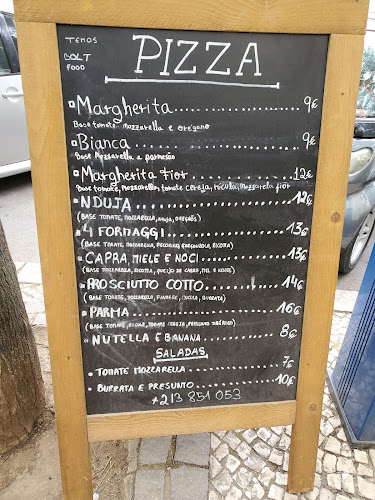 TEMOS
BOLT
FOOD
PIZZA
Margherita 9€
Base tomate, mozzarella e oregano
Bianca 9€
Base Mozzarella e parmesão
Margherita fior 12€
Base tomate, Mozzarella, tomate cereja, rucula, Mozzarela fior
NDUJA 12€
(BASE TOMATE, MOZZARELLA, nduja, OREGÃOS)
4 FORMAGGI 13€
(BASE TOMATE, MOZZARELLA, PECORINO, GORGONZOLA, RICOTTA)
CAPRA, MIELE E NOCI 13€
(BASE MOZZARELLA, RICOTTA, QUEIJO DE CABRA, MEL E NOZES)
PROSCIUTTO COTTO 14€
(BASE TOMATE, MOZZARELLA, FIAMBRE, RUCULA, BURRATA)
PARMA 16€
(BASE TOMATE, RUCULA, TOMATE CEREJA, PRESUNTO
NUTELLA E BANANA 8€
SALADAS
TOMATE MOZZARELLA 7€
BURRATA E PRESUNTO 10€
213 851 053